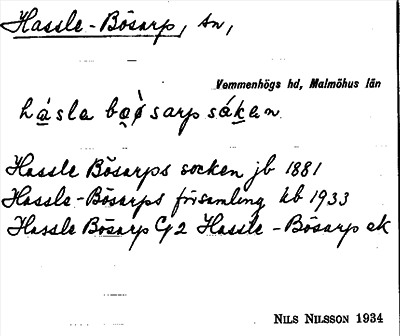 Hassle-Bösarp, sn,
Vemmenhögs hd, Malmöhus län
hásla baòsarp sákan
Hassle Bösarps socken jb 1881
Hassle-Bösarps församling kb 1933
Hassle Bösarp G2 Hassle-Bösarp ek
NILS NILSSON 1934